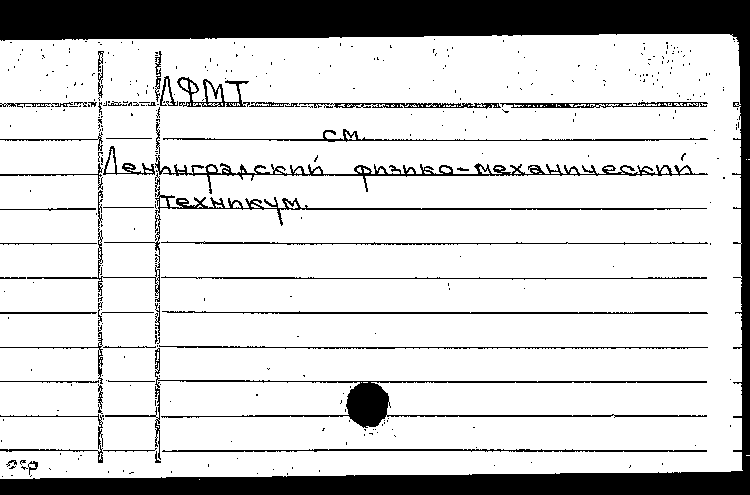 ЛФМТ
см.
Ленинградский физико-механический
техникум.